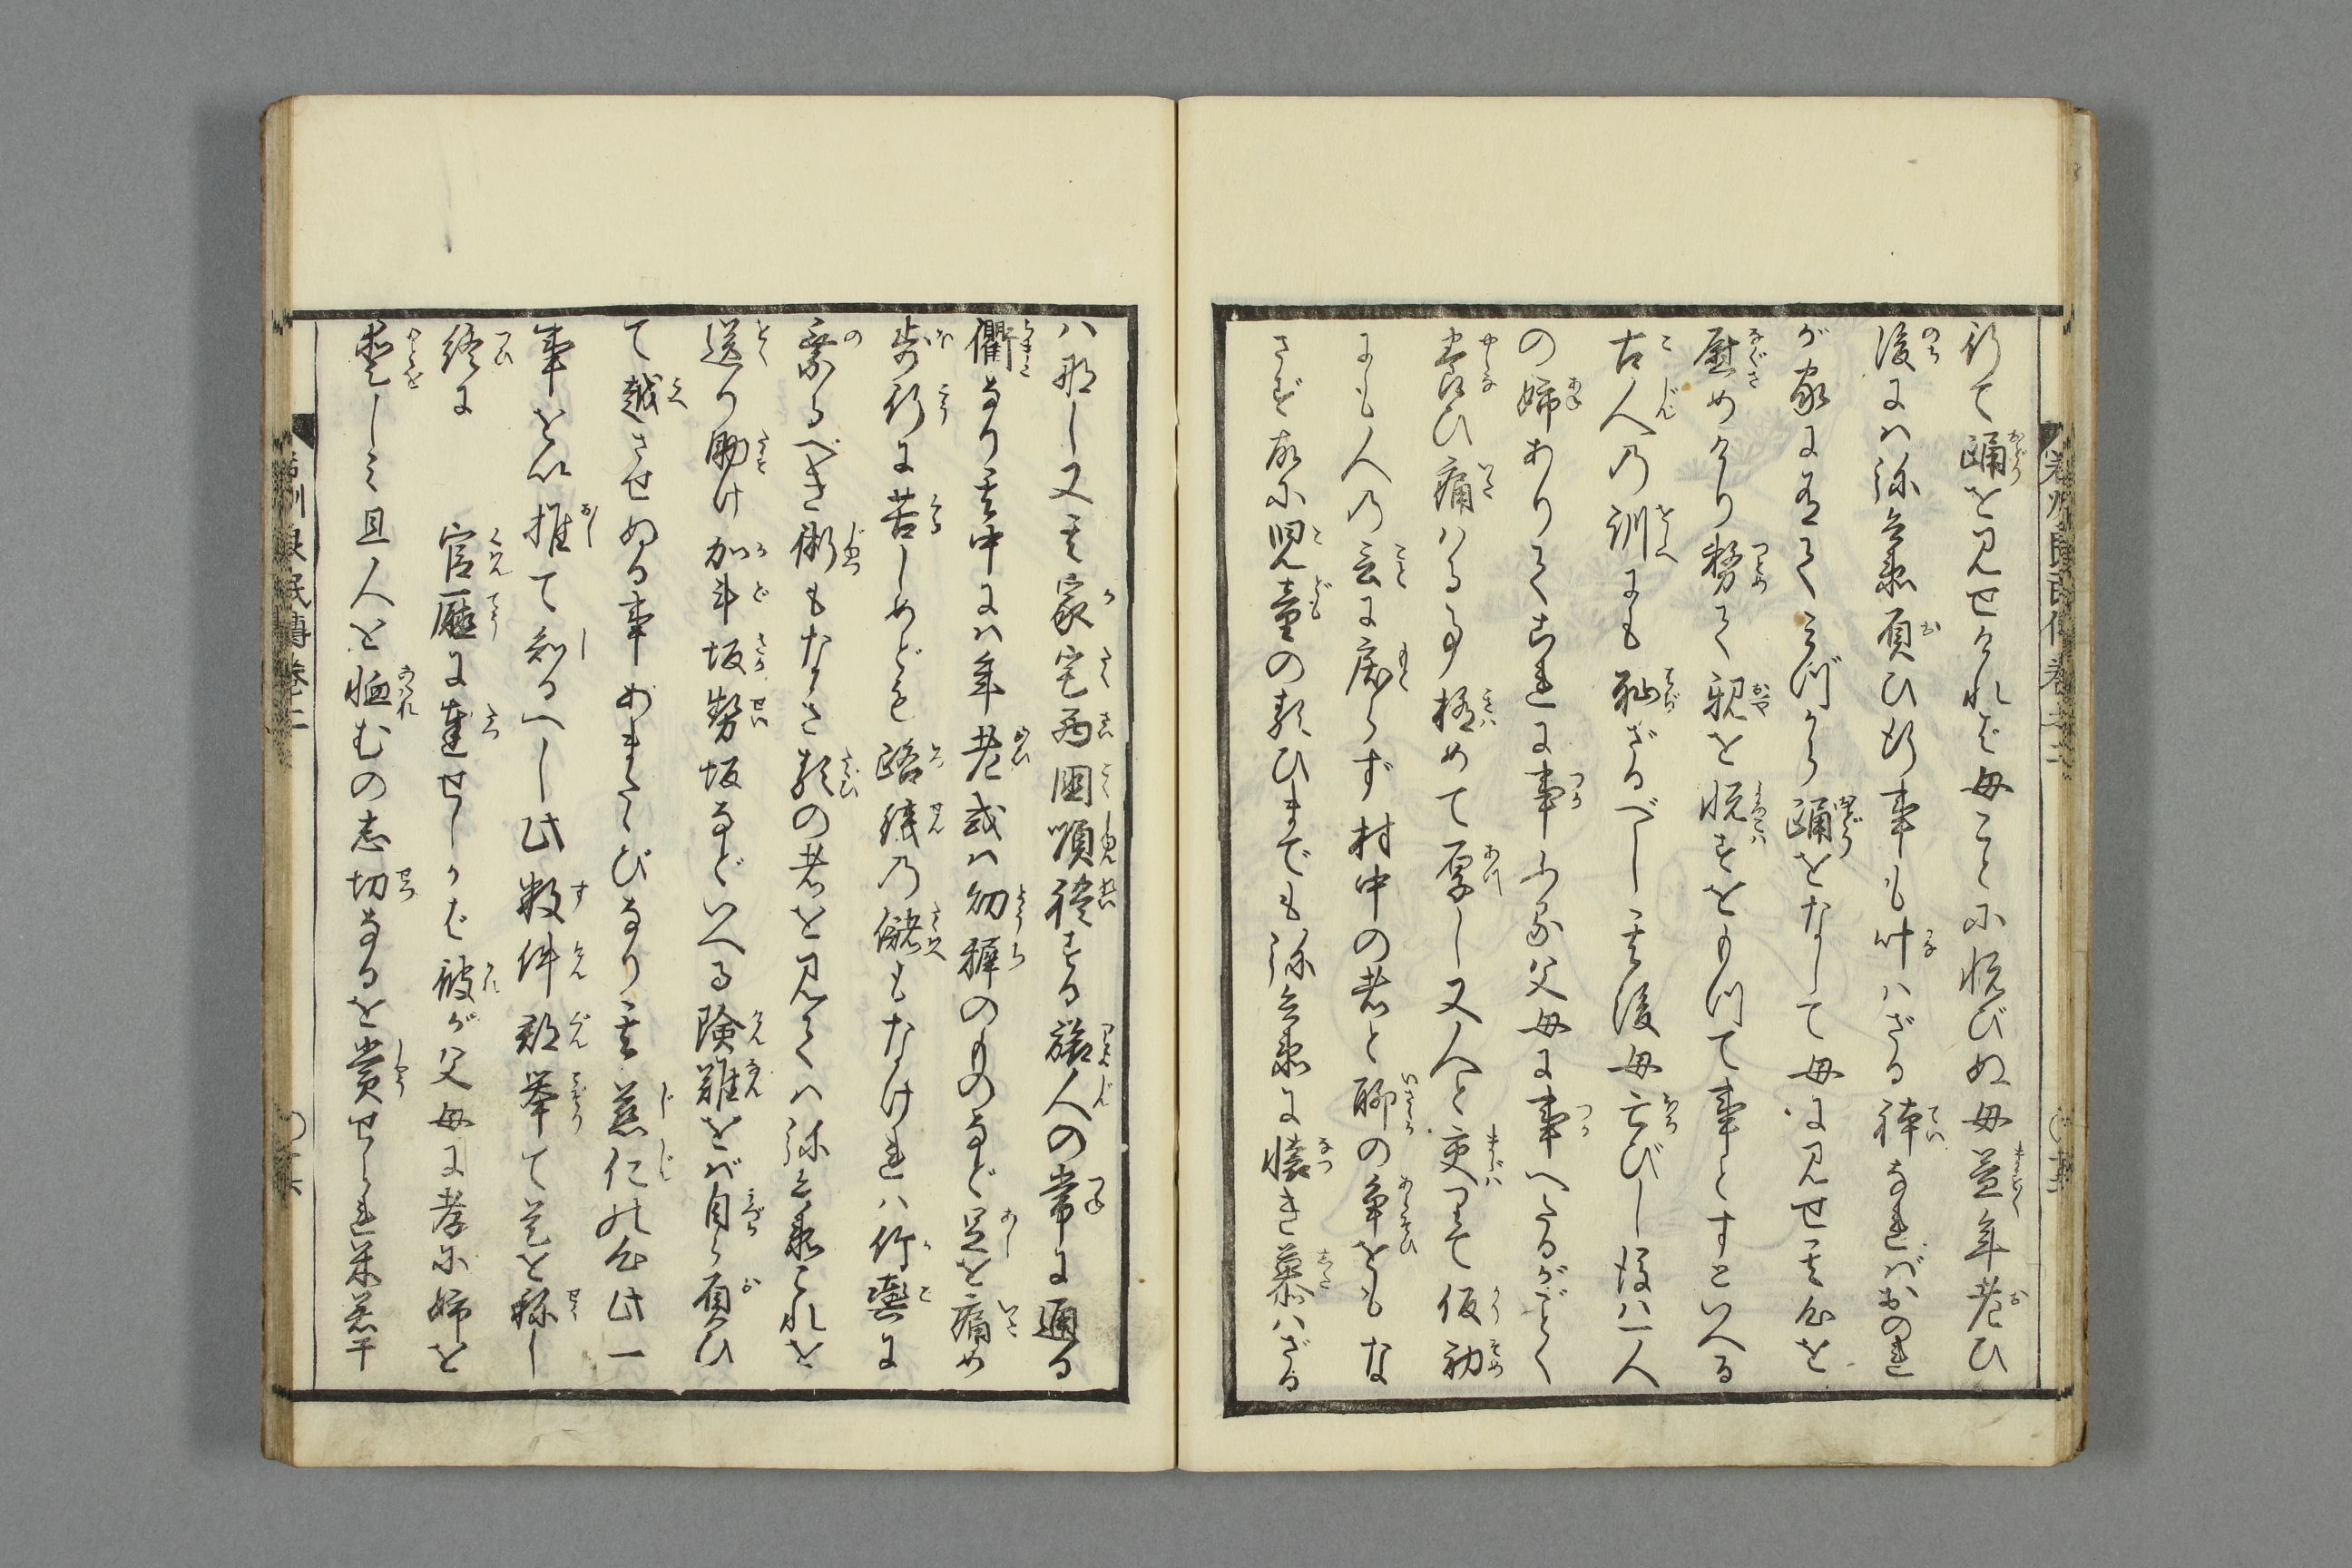 行て踊を見せけれど母ことに悦びぬ母益年老ひ
後には弥兵衛負ひ行事も叶ハざる体なれバおのれ
が家に有てミづから踊をなして母に見せ其心を
慰めけり務て親を悦すをもつて事とすといへる
古人の訓にも恥ざるべし其後母亡びし後ハ一人
の姉ありてこれに事ふる父母に事へたるがごとく
養ひ痛ハる事極めて厚し又人と交りて仮初
にも人の言に戻らず村中の者と聊の争をもな
さず故に児童の類ひまでも弥兵衛に懐き慕ハざる
ハ那し又其家宅西国順礼する旅人の常に通る
衢なり其中にハ年老或ハ幼稚のものなど足を痛め
歩行に苦しめども路銭の儲もなけれハ竹輿に
乗るべき術もなき類の者を見てハ弥兵衛これを
送り助け加斗坂勢坂などいへる険難をバ自ら負ひ
て越させぬる事あまたゝびなり其慈仁の心此一
事を以推て知るへし此数件郡挙て是を称し
終に　官廳に達せしかど彼が父母に孝に姉を
悪しミ且人を恤むの志切なるを賞せられ米若干
孝州良民傳巻之二
若州良民傳巻二